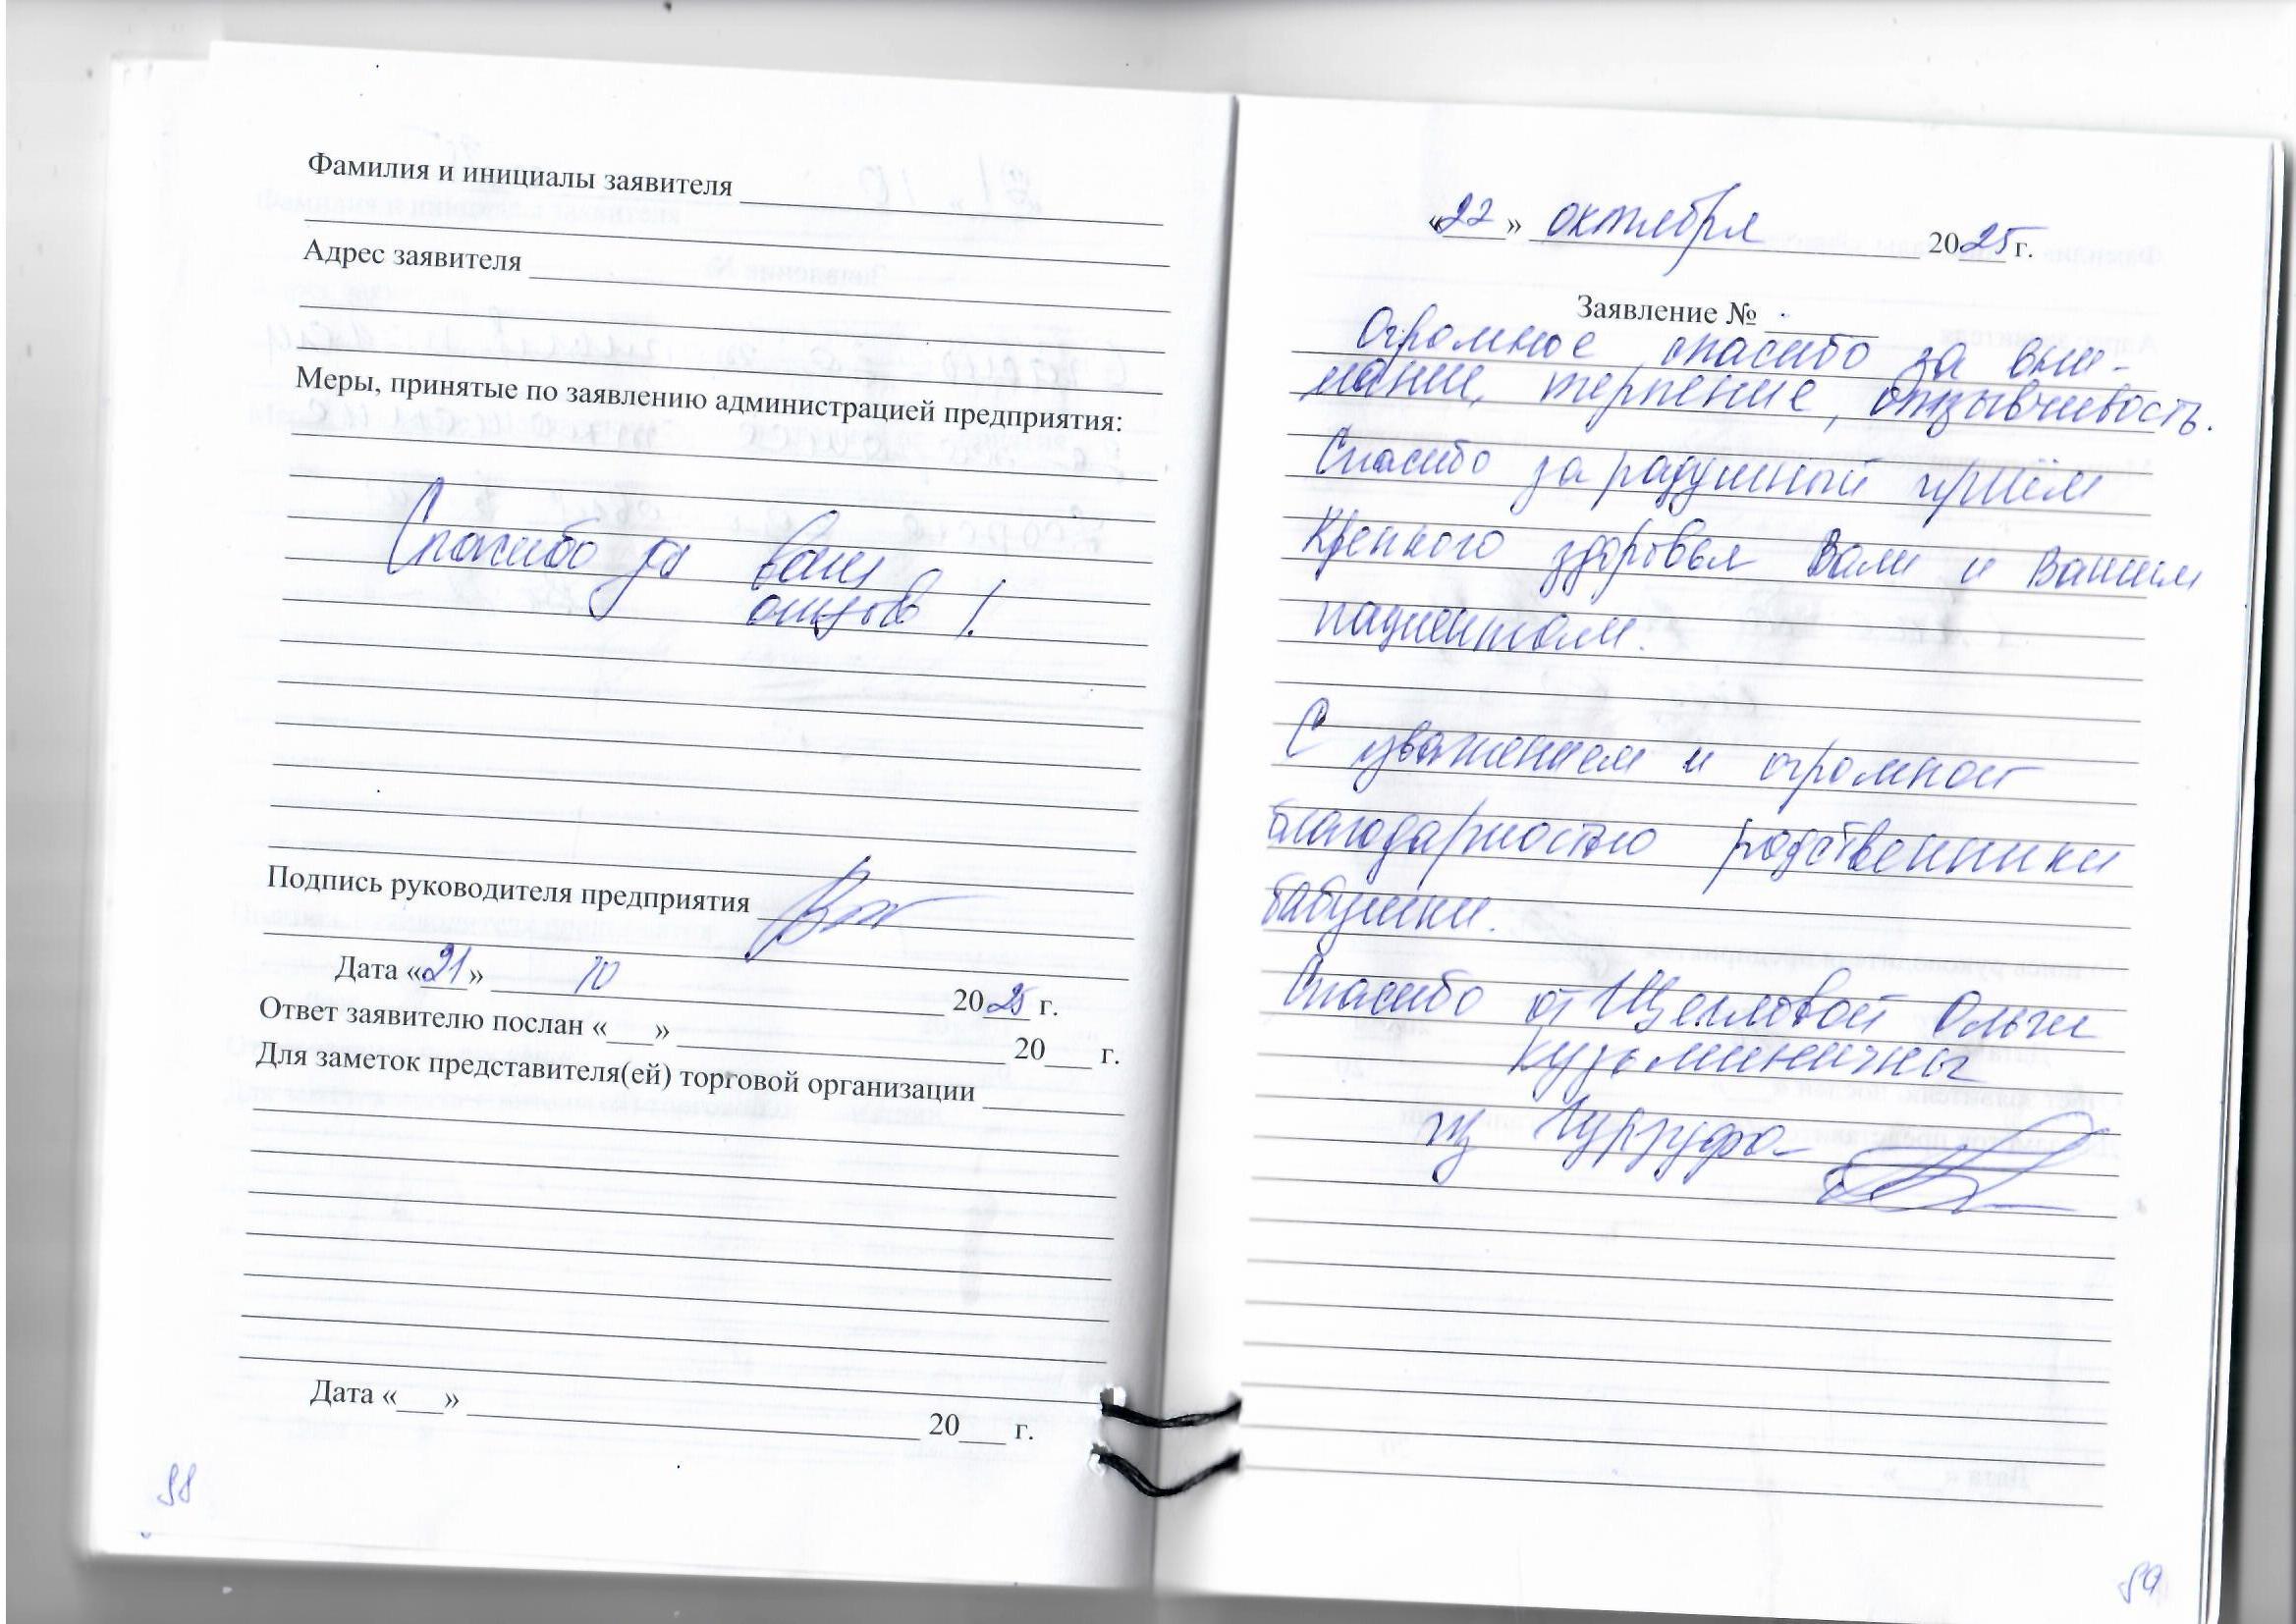 Фамилия и инициалы заявителя
Адрес заявителя
Меры, принятые по заявлению администрацией предприятия:
Спасибо за ваш
отзыв !
Подпись руководителя предприятия
Дата «21» 10 2025 г.
Ответ заявителю послан «___» 20___ г.
Для заметок представителя(ей) торговой организации
Дата «___» 20___ г.
98
«22» октября 2025 г.
Заявление №
Огромное спасибо за вни-
мание, терпение, отзывчивость.
Спасибо за радушный приём
Крепкого здоровья Вам и Вашим
пациентам.
С уважением и огромной
благодарностью родственники
бабушки.
Спасибо от Ольги
Кузьминичны
из Гурзуфа